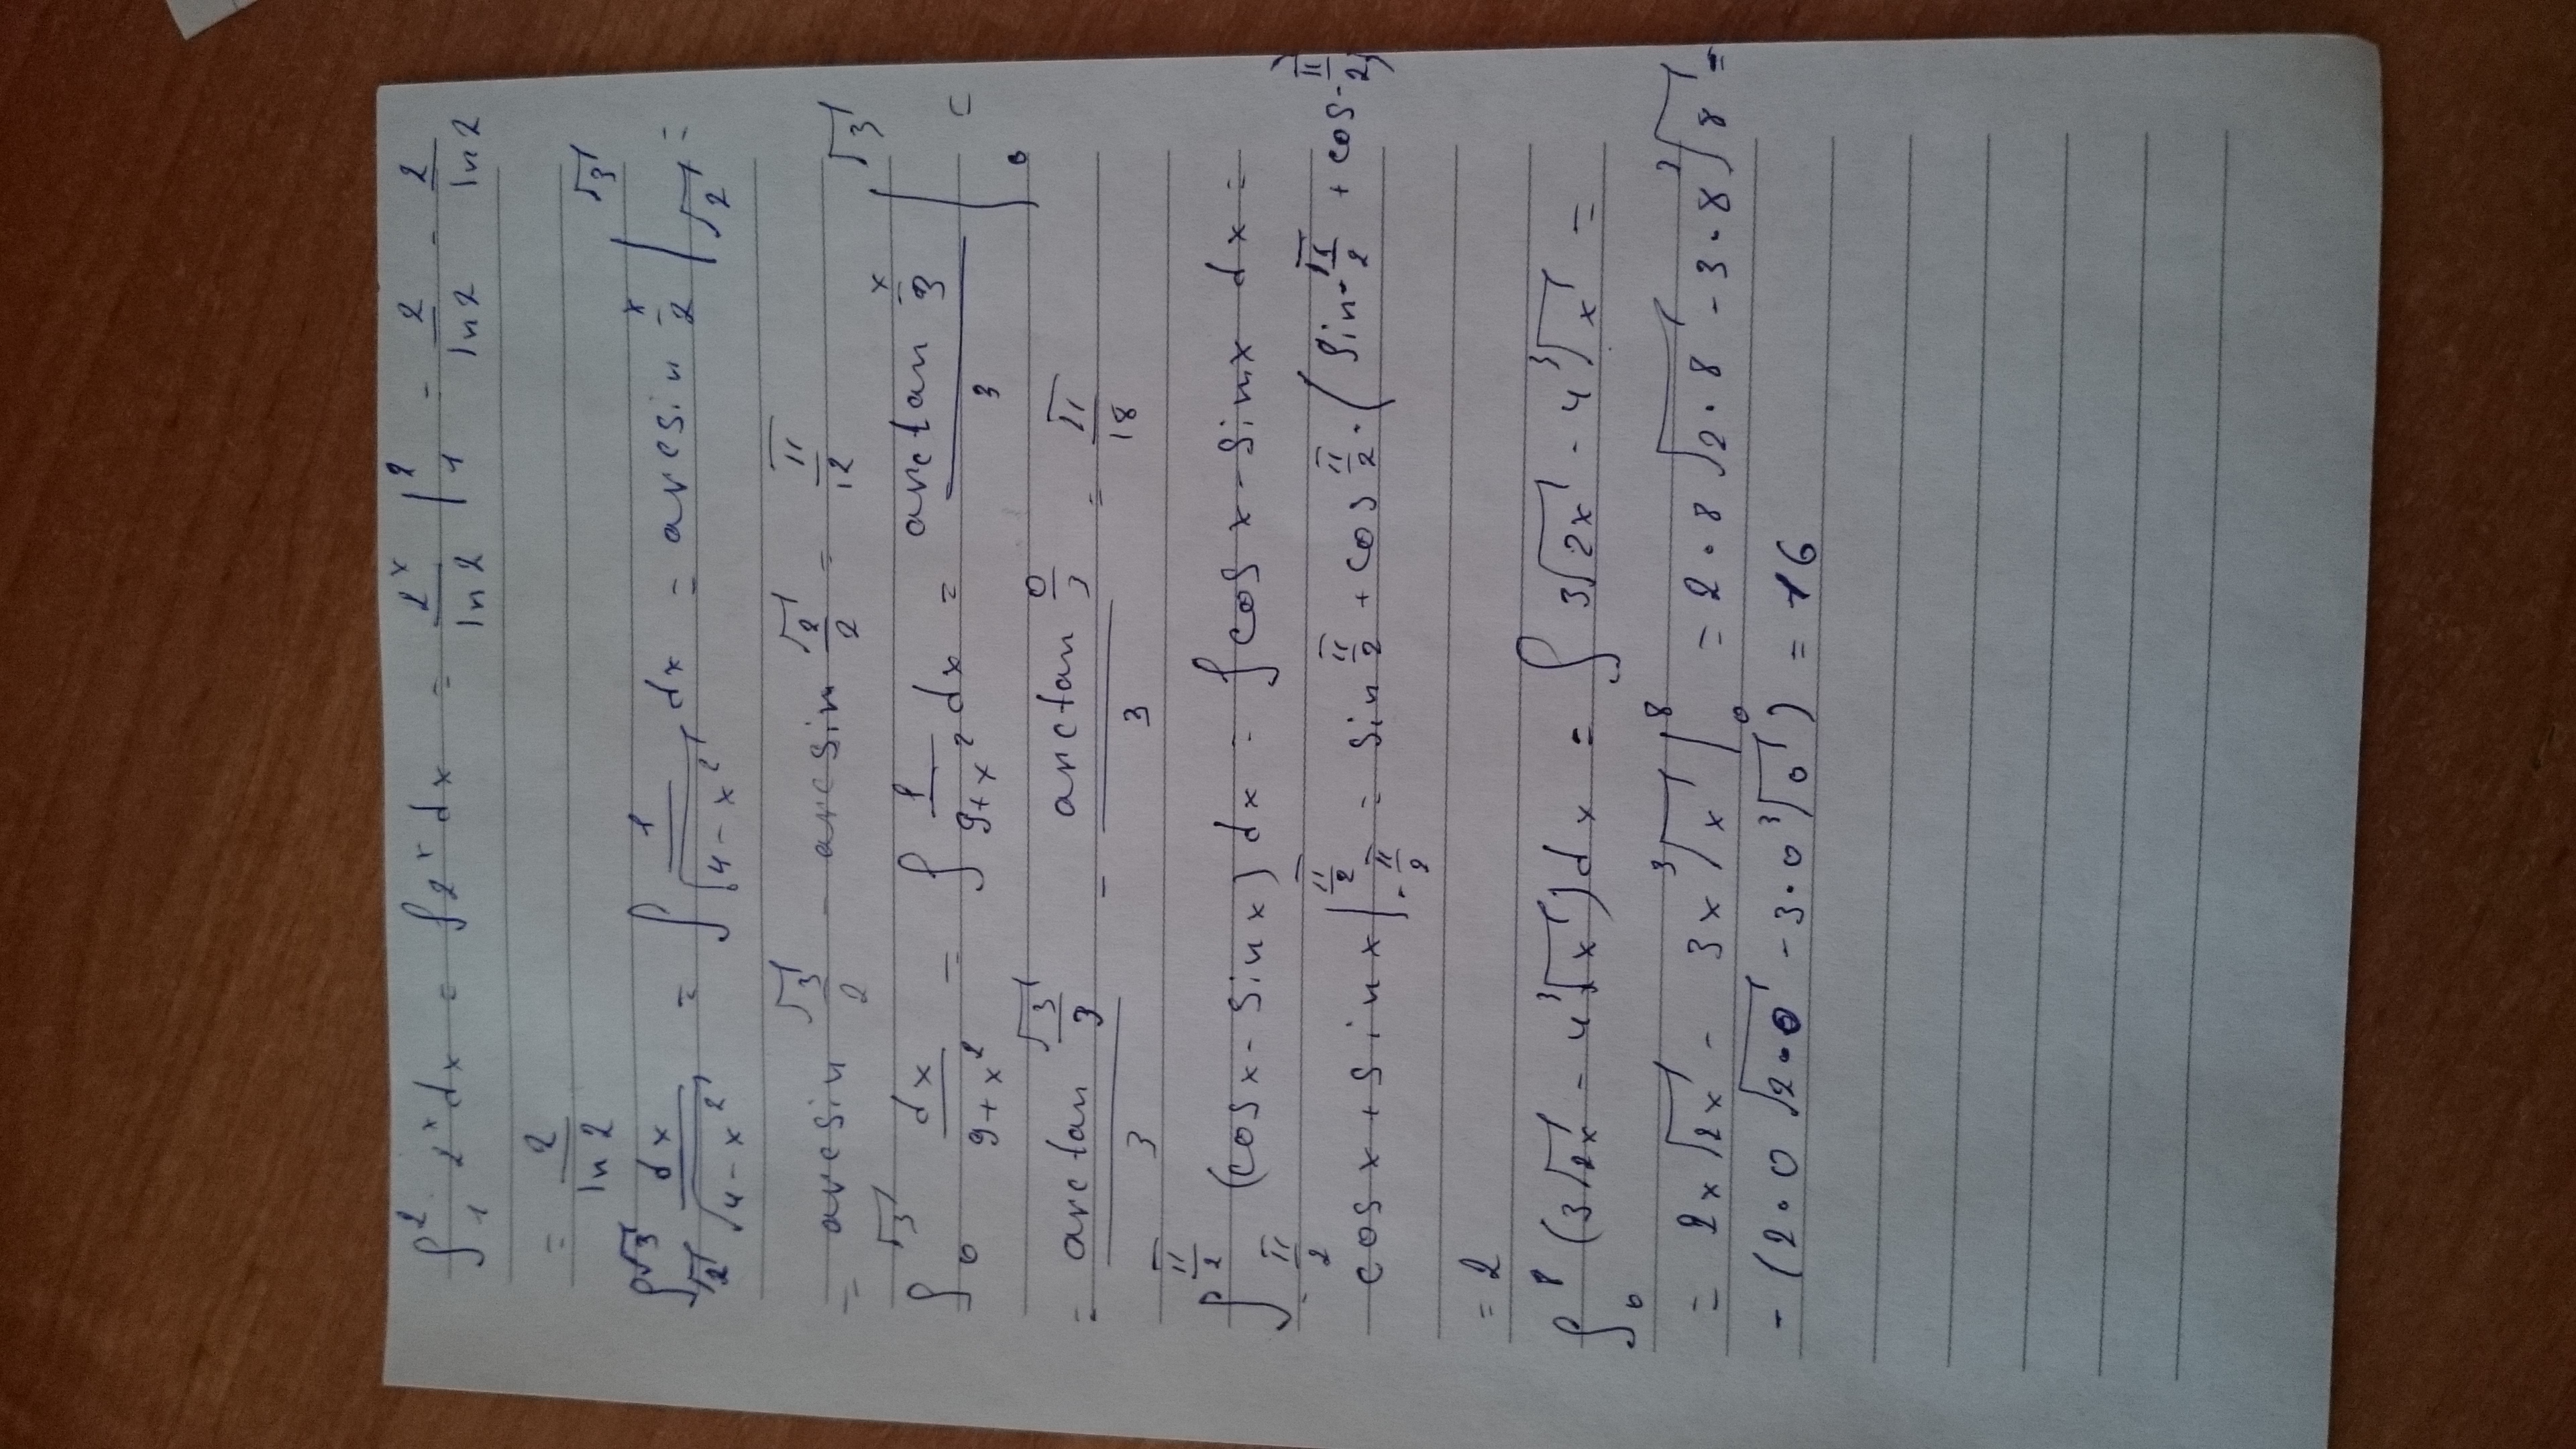 ∫₁² 2ˣ dx = ∫ 2ˣ dx = 2ˣ/ln 2 |₁² = 2/ln 2 - 2/ln 2
= 2/ln 2
∫_√2^√3 dx/√(4-x²) = ∫ 1/√(4-x²) dx = arcsin x/2 |_√2^√3 =
= arcsin √3/2 - arcsin √2/2 = π/12
∫₀^√3 dx/(9+x²) = ∫ 1/(9+x²) dx = (arctan x/3)/3 |₀^√3 =
= (arctan √3/3)/3 - (arctan 0/3)/3 = π/18
∫_-π/2^π/2 (cos x - sin x) dx = ∫ cos x - sin x dx =
cos x + sin x |_-π/2^π/2 = sin π/2 + cos π/2 · (sin -π/2 + cos -π/2)
= 2
∫₀⁸ (3√(2x) - 4∛x) dx = ∫ 3√(2x) - 4∛x =
= 2x√(2x) - 3x∛x |₀⁸ = 2·8√(2·8) - 3·8∛8 =
- (2·0√(2·0) - 3·0∛0) = 16